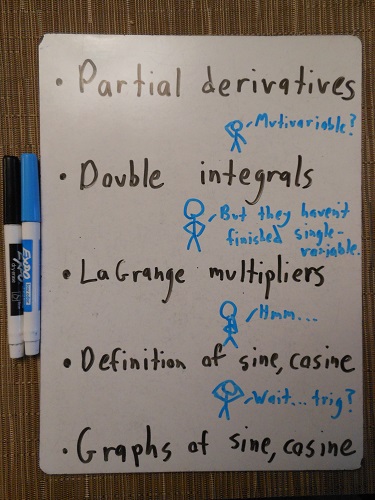 • Partial derivatives
Mutivariable?
• Double integrals
But they haven't
finished single-
variable.
• LaGrange multipliers
Hmm...
• Definition of sine, cosine
Wait... trig?
• Graphs of sine, cosine
EXPO
EXPO